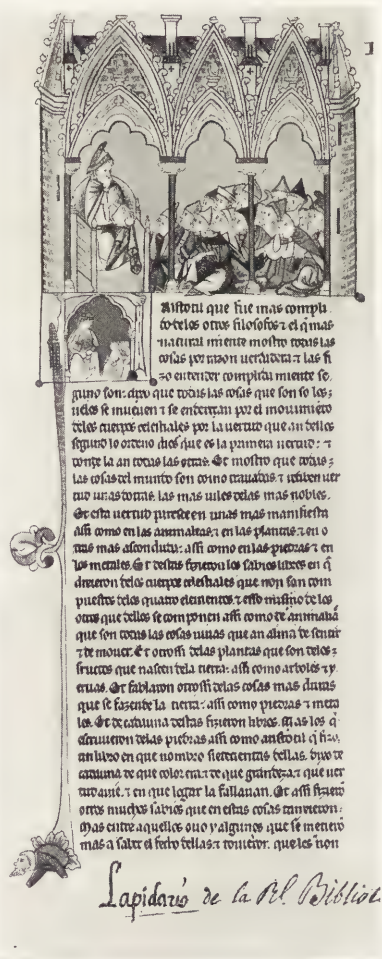 Aristotil que fue mas compli
do delos otros filosofos ⁊ el q̃ mas
natural miente mostro todas las
cosas por razon uerdadera ⁊ las fi
zo entender complida miente se
guno son: dixo que todas las cosas que son so los
cielos se mueuen ⁊ se enderecan por el mouimiẽto
delos cuerpos celestiales por la uertud que an dellos
segund lo ordeno dios que es la primera uertud: ⁊
donde la an todas las otras. Et mostro que todas
las cosas del mundo son como trauadas ⁊ reciben uer
tud unas dotras. las mas uiles delas mas nobles.
Et esta uertud paresce en unas mas manifiesta
assi como en las animalias. ⁊ en las plantas. ⁊ en o
tras mas asconduda: assi como en las piedras ⁊ en
los metales. Et destas fizieron los sabios libros en q̃
dixieron delos cuerpos celestiales que non son com
puestos delos quatro elementos. ⁊ esso mismo de los
otros que dellos se componen assi como de animalias
que son todas las cosas uiuas que an alma de sentir
⁊ de mouer. Et otrossi delas plantas que son delos
fructos que nascen dela tierra: assi como arboles ⁊ y
eruas. Et fablaron otrossi delas cosas mas duras
que se fazen de la tierra: assi como piedras ⁊ meta
les. Et de cadauna destas fizieron libros. Mas los q̃
escriuieron delas piedras assi como aristotil q̃ fizo
un libro en que nombro sietecientas dellas. dixo de
cadauna de que color era ⁊ de que grandeza. ⁊ que uer
tud auie. ⁊ en que logar la fallauan. Et assi fizierõ
otros muchos sabios que en estas cosas
Mas entre aquellos ouo y algunos que se metierõ
mas a saber el fecho dellas. ⁊ touierõ. que les non
Lapidario de la Rl. Bibliot